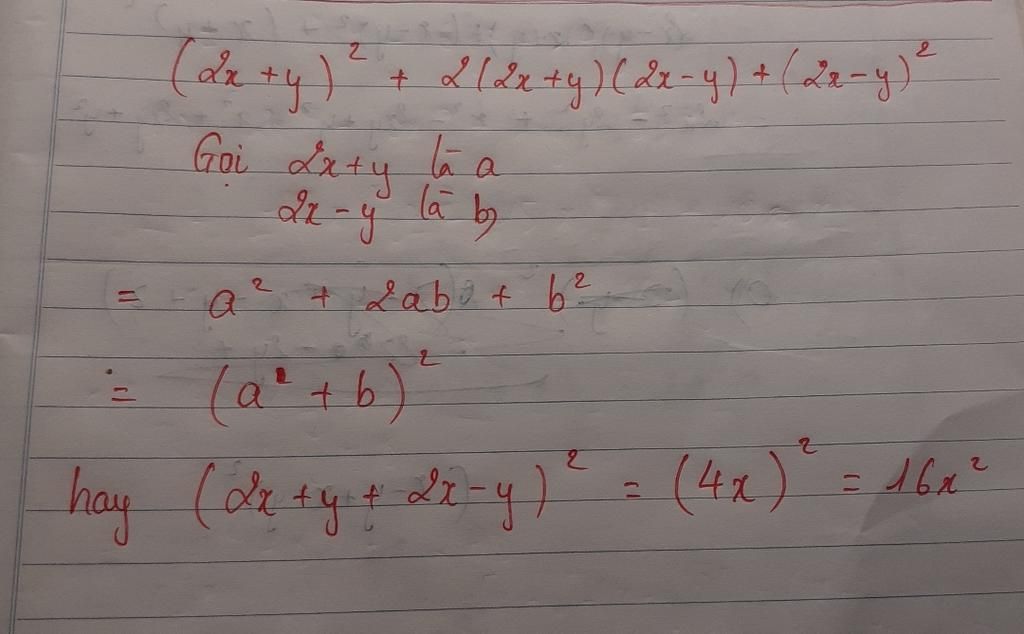 (2x+y)² + 2(2x+y)(2x-y)+(2x-y)²
Gọi 2x+y là a
2x-y là b
= a² + 2ab + b²
= (a + b)²
hay (2x+y+2x-y)² = (4x)² = 16x²